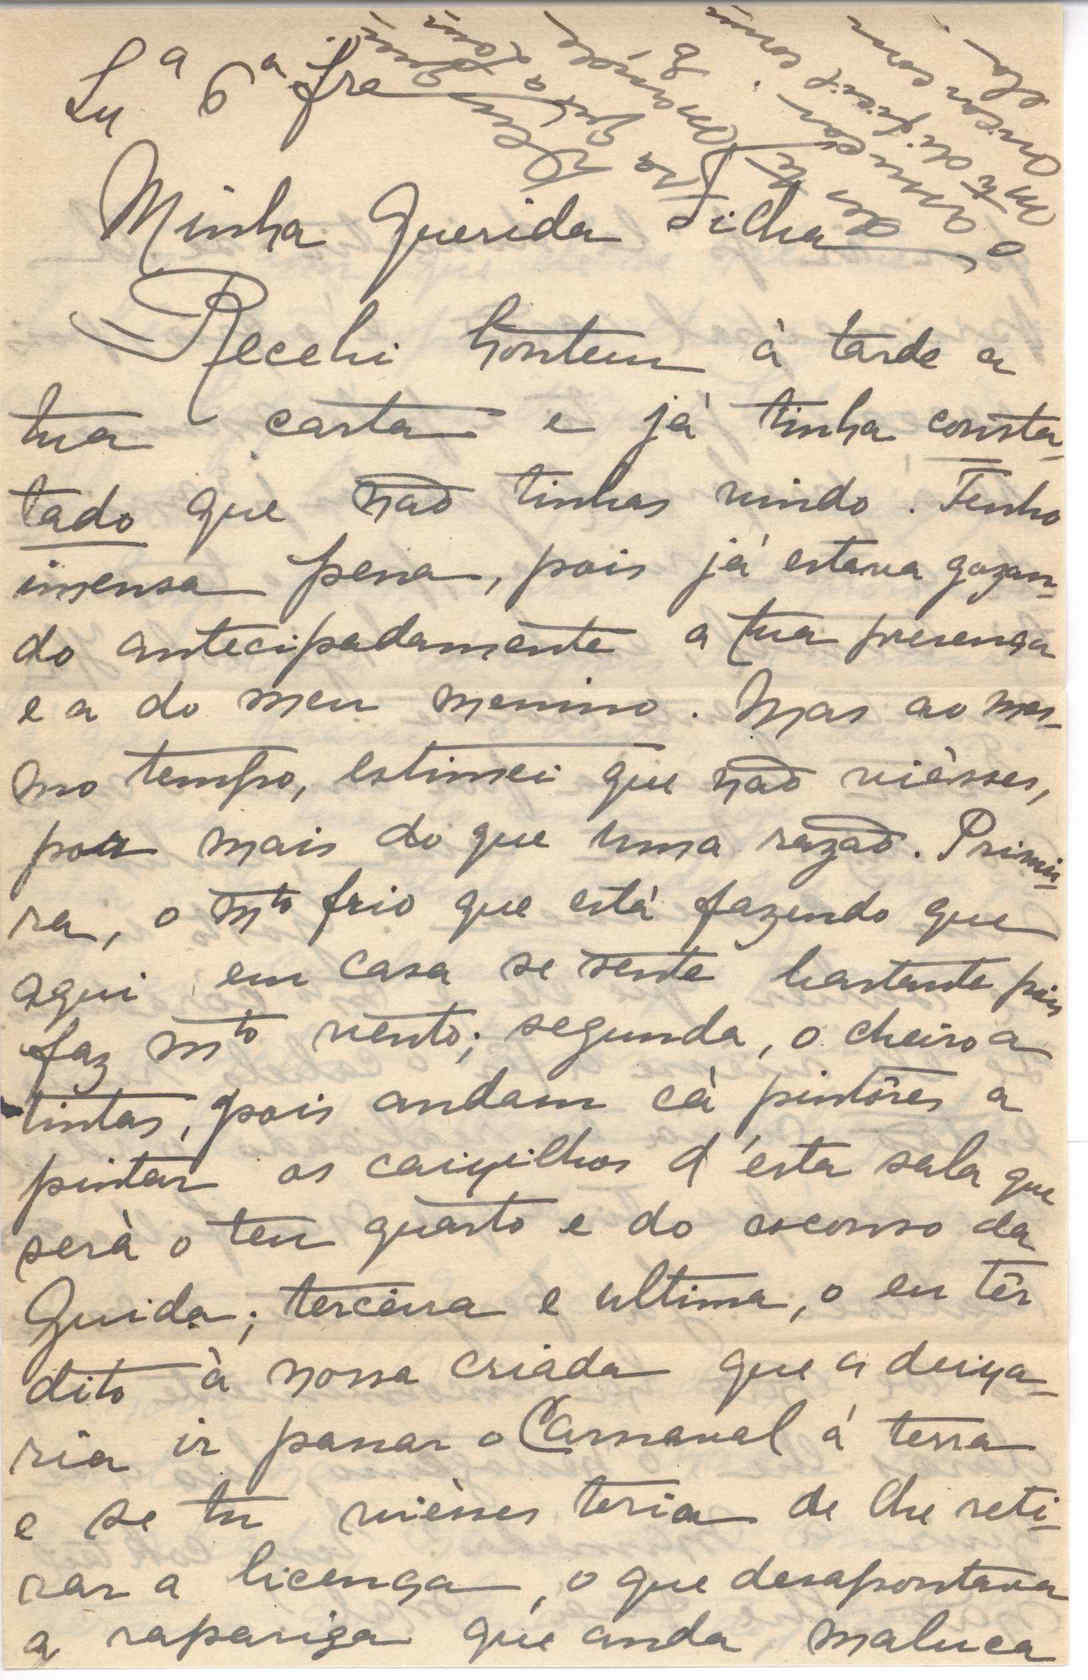 Lxª 6ª fra
Minha Querida Filha
Recebi hontem à tarde a
tua carta e já tinha consta-
tado que não tinhas vindo. Tenho
imensa pena, pois já estava gozan-
do antecipadamente a tua presença
e a do meu menino. Mas ao mes-
mo tempo, estimei que não viésses,
por mais do que uma razão. Primei-
ra, o mto frio que está fazendo que
aqui em casa se sente bastante pois
faz mto vento; segunda, o cheiro a
tintas, pois andam cá pintôres a
pintar os caixilhos d'esta sala que
será o teu quarto e do escouso da
Guida; terceira e ultima, o eu têr
dito à nossa criada que a deixa-
ria ir passar o Carnaval á terra
e se tu viésses teria de lhe reti-
rar a licença, o que desapontava
a rapariga que anda maluca